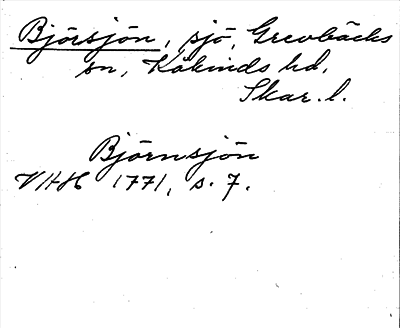 Björsjön, sjö, Grevbäcks
sn, Kåkinds hd,
Skar. l.
Björnsjön
VHH 1771, s. 7.